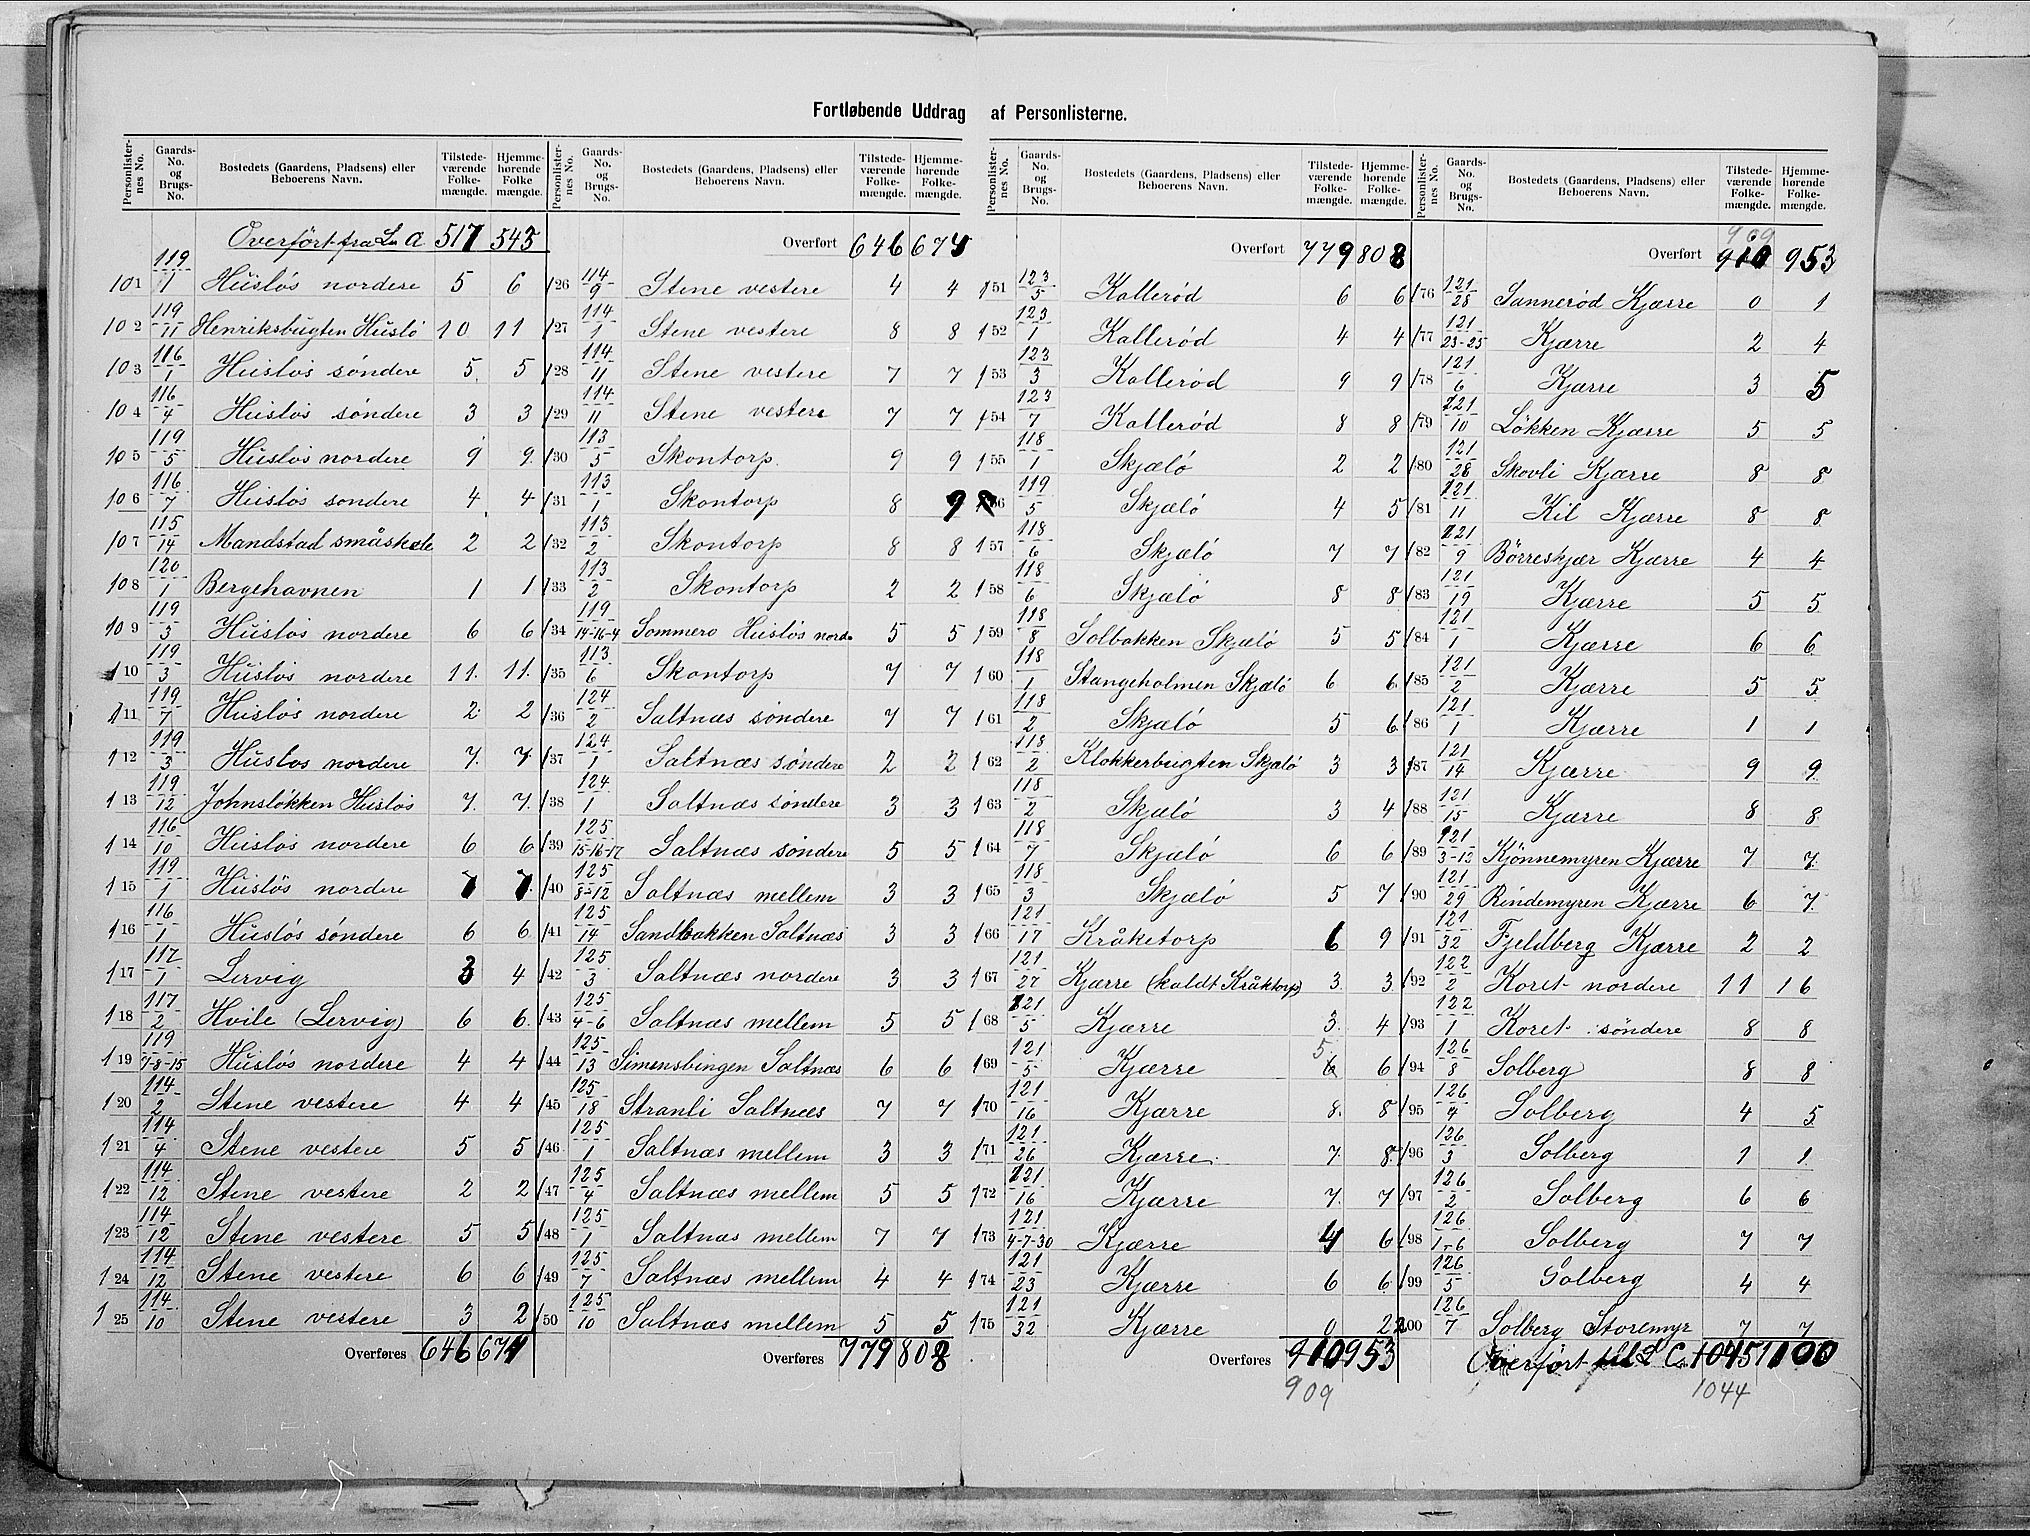 Fortløbende Uddrag af Personlisterne.
Personlister-nes No. | Gaards-No. og Brugs-No. | Bostedets (Gaardens, Pladsens) eller Beboerens Navn. | Tilstede-værende Folke-mængde. | Hjemme-hørende Folke mængde.
Overført fra L. A 517 543
101 119/1 Huslös nordere 5 6
102 119/11 Henriksbugten Huslö 10 11
103 116/1 Huslös søndere 5 5
104 116/4 Huslös søndere 3 3
105 119/5 Huslös nordere 9 9
106 116/7 Huslös sondere 4 4
107 115/14 Mandstad småskole 2 2
108 120/1 Bergehavnen 1 1
109 119/3 Huslös nordere 6 6
110 119/3 Huslös nordere 11 11
111 119/7 Huslös nordere 2 2
112 119/3 Huslos nordere 7 7
113 119/12 Johnsløkken Huslös 7 7
114 116/10 Huslös nordere 6 6
115 119/1 Huslös nordere 7 7
116 116/1 Huslös søndere 6 6
117 117/1 Lervig 3 4
118 117/2 Hvile (Lervig) 6 6
119 119/7-8-15 Huslös nordere 4 4
120 114/2 Stene vestere 4 4
121 114/4 Stene vestere 5 5
122 114/12 Stene vestere 2 2
123 114/12 Stene vestere 5 5
124 114/12 Stene vestere 6 6
125 114/10 Stene vestere 3 2
Overføres 646 671
Personlister-nes No. | Gaards-No. og Brugs-No. | Bostedets (Gaardens, Pladsens) eller Beboerens Navn. | Tilstede-værende Folke-mængde. | Hjemme-hørende Folke-mængde.
Overført 646 671
126 114/9 Stene vestere 4 4
127 114/1 Stene vestere 8 8
128 114/11 Stene vestere 7 7
129 114/11 Stene vestere 7 7
130 113/5 Skontorp 9 9
131 113/1 Skontorp 8 9
132 113/2 Skontorp 8 8
133 113/2 Skontorp 2 2
134 119/14-16-4 Sommero Huslös nord. 5 5
135 113/6 Skontorp 7 7
136 124/2 Saltnæs søndere 7 7
137 124/1 Saltnæs søndere 2 2
138 124/1 Saltnæs søndere 3 3
139 125/15-16-17 Saltnæs søndere 5 5
140 125/8-12 Saltnæs mellem 3 3
141 125/14 Sandbakken Saltnæs 3 3
142 125/3 Saltnæs nordere 3 3
143 125/4-6 Saltnæs mellem 5 5
144 125/13 Simensbingen Saltnæs 6 6
145 125/18 Stranli Saltnæs 7 7
146 125/1 Saltnæs mellem 3 3
147 125/4 Saltnæs mellem 5 5
148 125/1 Saltnæs mellem 7 7
149 125/7 Saltnæs mellem 4 4
150 125/10 Saltnæs mellem 5 5
Overføres 779 808
Personlister-nes No. | Gaards-No. og Brugs-No. | Bostedets (Gaardens, Pladsens) eller Beboerens Navn. | Tilstede-værende Folke-mængde. | Hjemme-hørende Folke-mængde.
Overført 779 808
151 123/5 Kallerød 6 6
152 123/1 Kallerød 4 4
153 123/3 Kallerød 9 9
154 123/7 Kallerød 8 8
155 118/1 Skjælö 2 2
156 119/5 Skjælö 4 5
157 118/6 Skjælö 7 7
158 118/6 Skjælö 8 8
159 118/8 Solbakken Skjælö 5 5
160 118/1 Stangeholmen Skjælö 6 6
161 118/2 Skjælö 5 6
162 118/2 Klokkerbugten Skjælö 3 3
163 118/2 Skjælö 3 4
164 118/7 Skjælö 6 6
165 118/3 Skjælö 5 7
166 121/17 Kråketorp 6 9
167 121/27 Kjærre (kaldt Kråktorp) 3 3
168 121/5 Kjærre 3 4
169 121/5 Kjærre 5 6 6
170 121/16 Kjærre 8 8
171 121/26 Kjærre 7 8
172 121/16 Kjærre 7 7
173 121/4-7-30 Kjærre 4 6
174 121/23 Kjærre 6 6
175 121/32 Kjærre 0 2
Overføres 910 953
909
Personlister-nes No. | Gaards-No. og Brugs-No. | Bostedets (Gaardens, Pladsens) eller Beboerens Navn. | Tilstede-værende Folke-mængde. | Hjemme-hørende Folke-mængde.
909
Overført 910 953
176 121/28 Sannerød Kjærre 0 1
177 121/23-25 Kjærre 2 4
178 121/6 Kjærre 3 5
179 121/10 Løkken Kjærre 5 5
180 121/28 Skovli Kjærre 8 8
181 121/11 Kil Kjærre 8 8
182 121/9 Børreskjær Kjærre 4 4
183 121/19 Kjærre 5 5
184 121/1 Kjærre 6 6
185 121/2 Kjærre 5 5
186 121/1 Kjærre 1 1
187 121/14 Kjærre 9 9
188 121/15 Kjærre 8 8
189 121/3-13 Kjönnemyren Kjærre 7 7
190 121/29 Rindemyren Kjærre 6 7
191 121/32 Fjeldberg Kjærre 2 2
192 122/2 Koret nordere 11 16
193 122/1 Koret søndere 8 8
194 126/8 Solberg 8 8
195 126/4 Solberg 4 5
196 126/3 Solberg 1 1
197 126/2 Solberg 6 6
198 126/1-6 Solberg 7 7
199 126/5 Solberg 4 4
200 126/7 Solberg Storemyr 7 7
Overført til L C. 1045 1100
1044